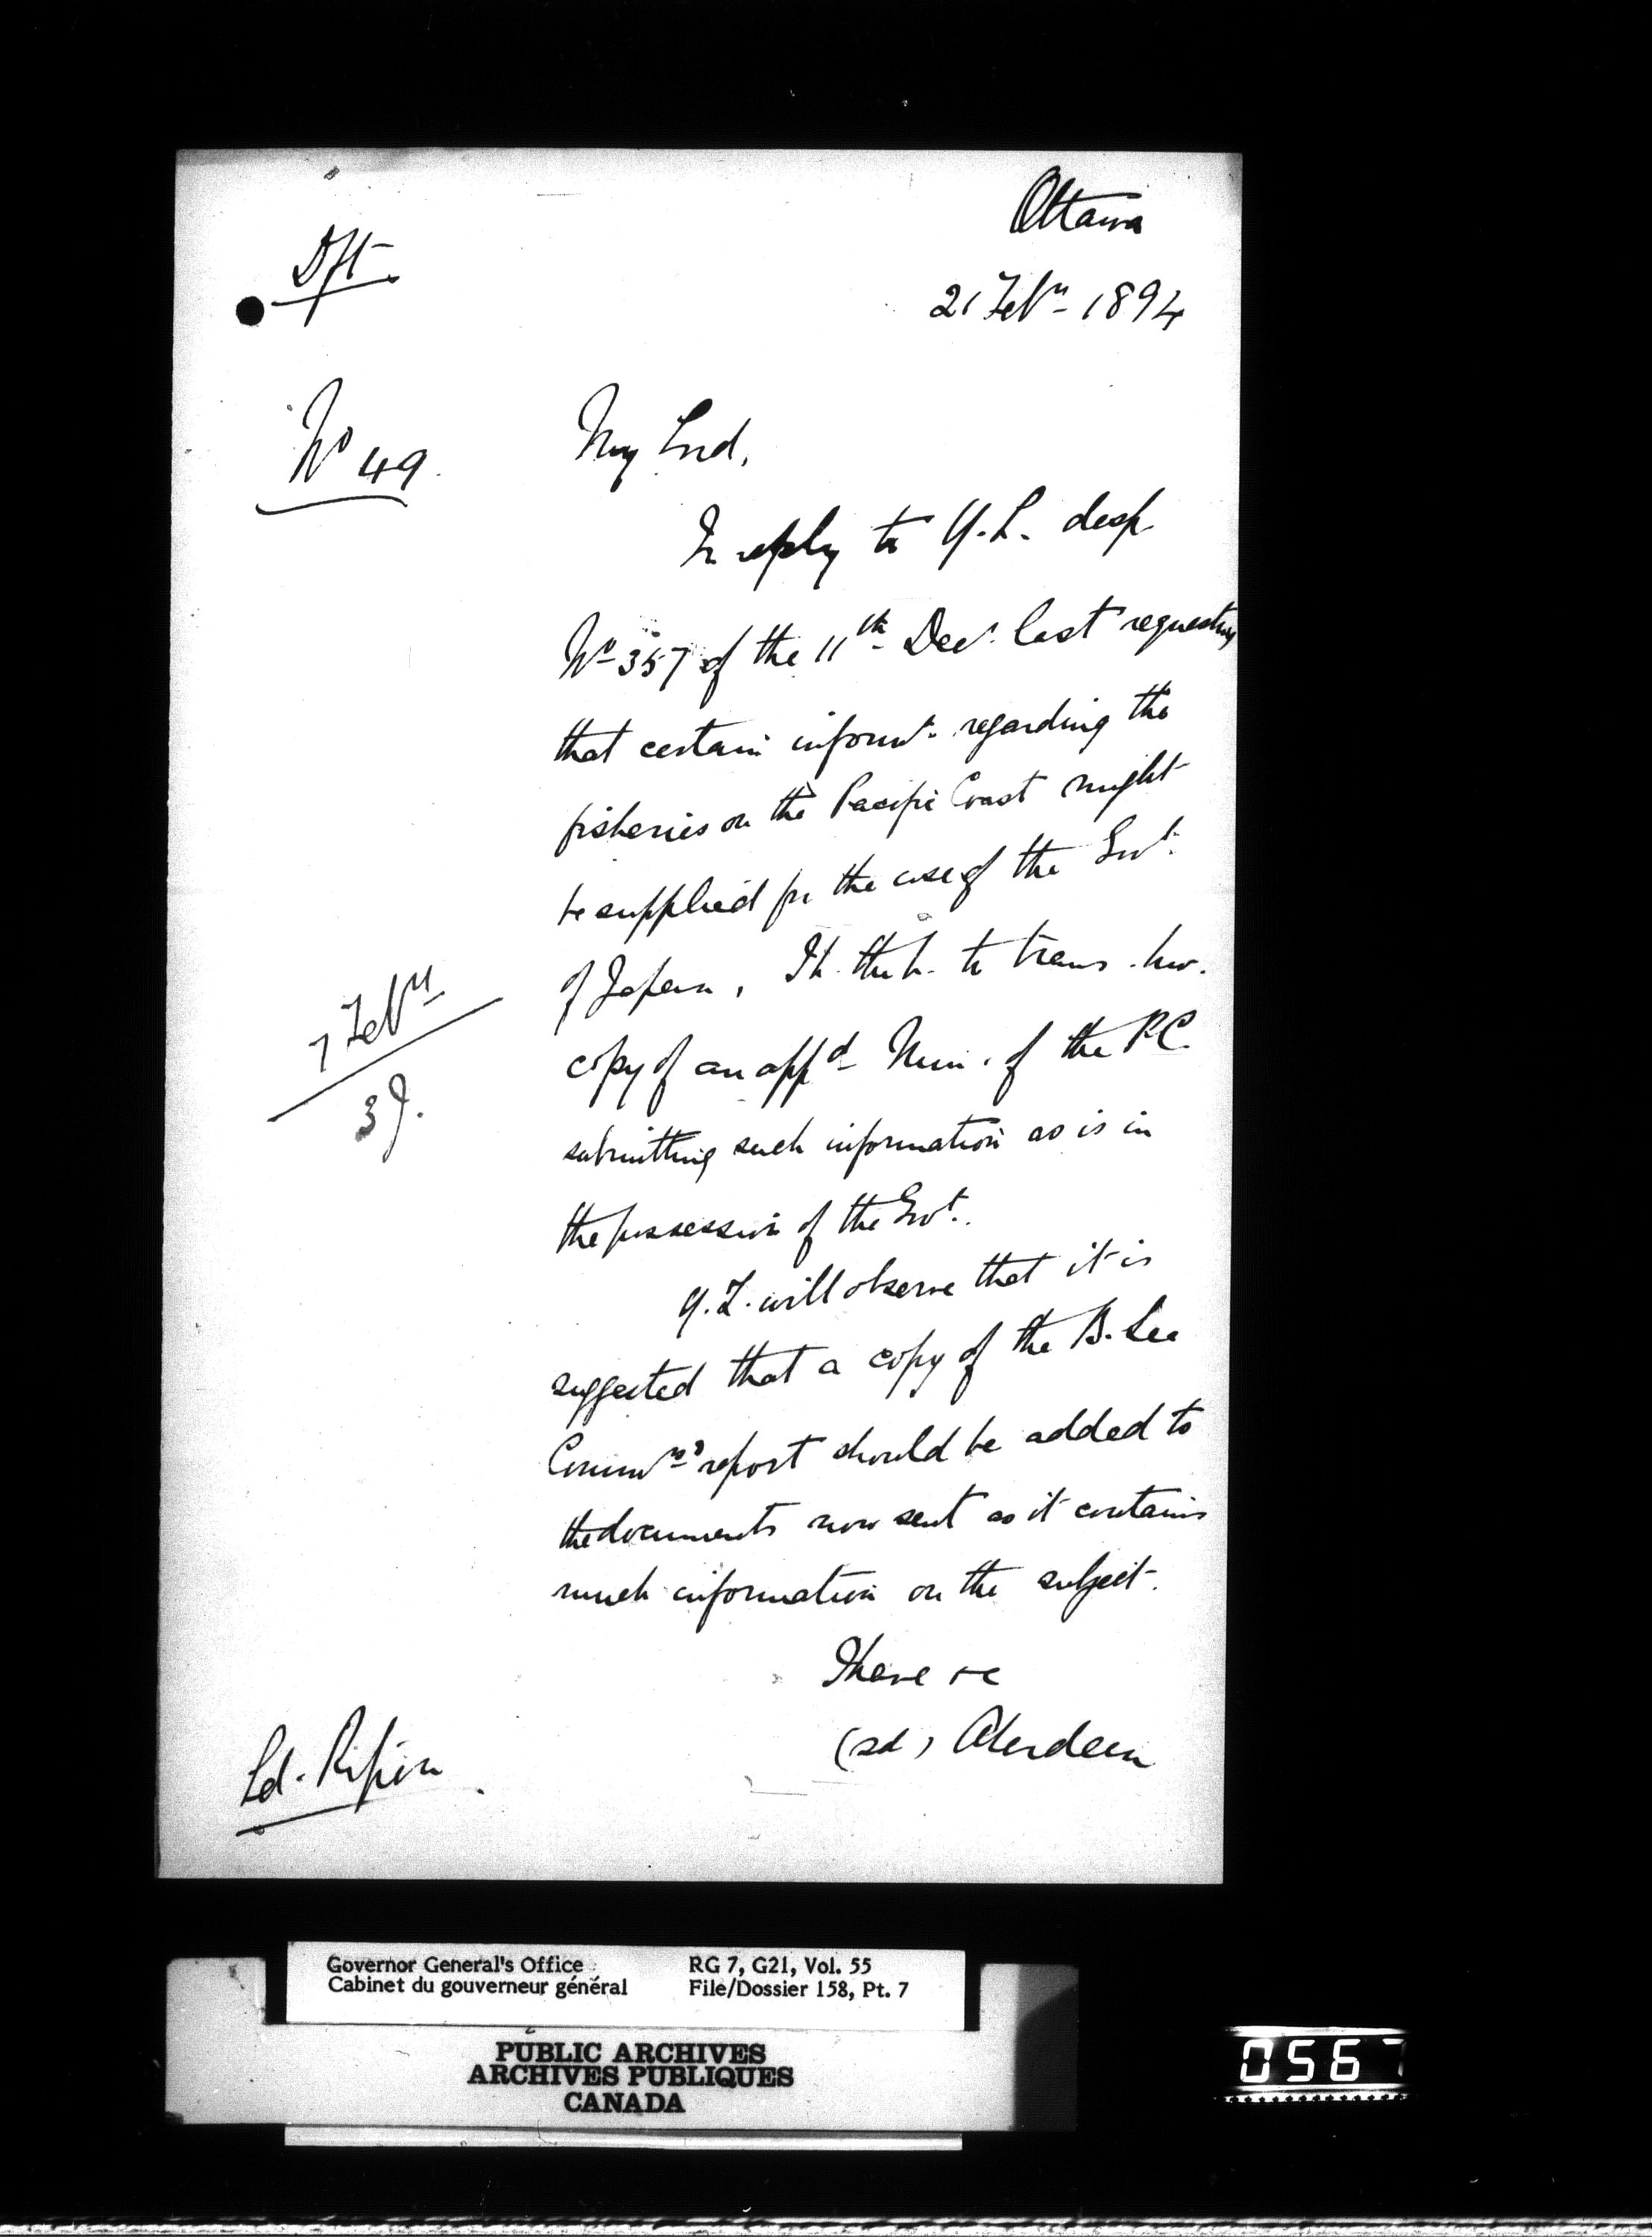 Dft.
Ottawa
21 Feby - 1894
No 49.
My Lord,
In reply to Y.L. desp.
No 357 of the 11th Decr. last requesting
that certain informn. regarding the
fisheries on the Pacific Coast might
be supplied for the use of the Govt.
of Japan, I h. the h. to trans. hw.
7 Feby
3 J.
copy of an appd Min. of the P.C.
submitting such information as is in
the possession of the Govt.
Y.L. will observe that it is
suggested that a copy of the B. Sea
Commrs' report should be added to
the documents now sent as it contains
much information on the subject.
I have &c
(sd) Aberdeen
Ld. Ripon
Governor General's Office
Cabinet du gouverneur général
RG 7, G21, Vol. 55
File/Dossier 158, Pt. 7
PUBLIC ARCHIVES
ARCHIVES PUBLIQUES
CANADA
0567